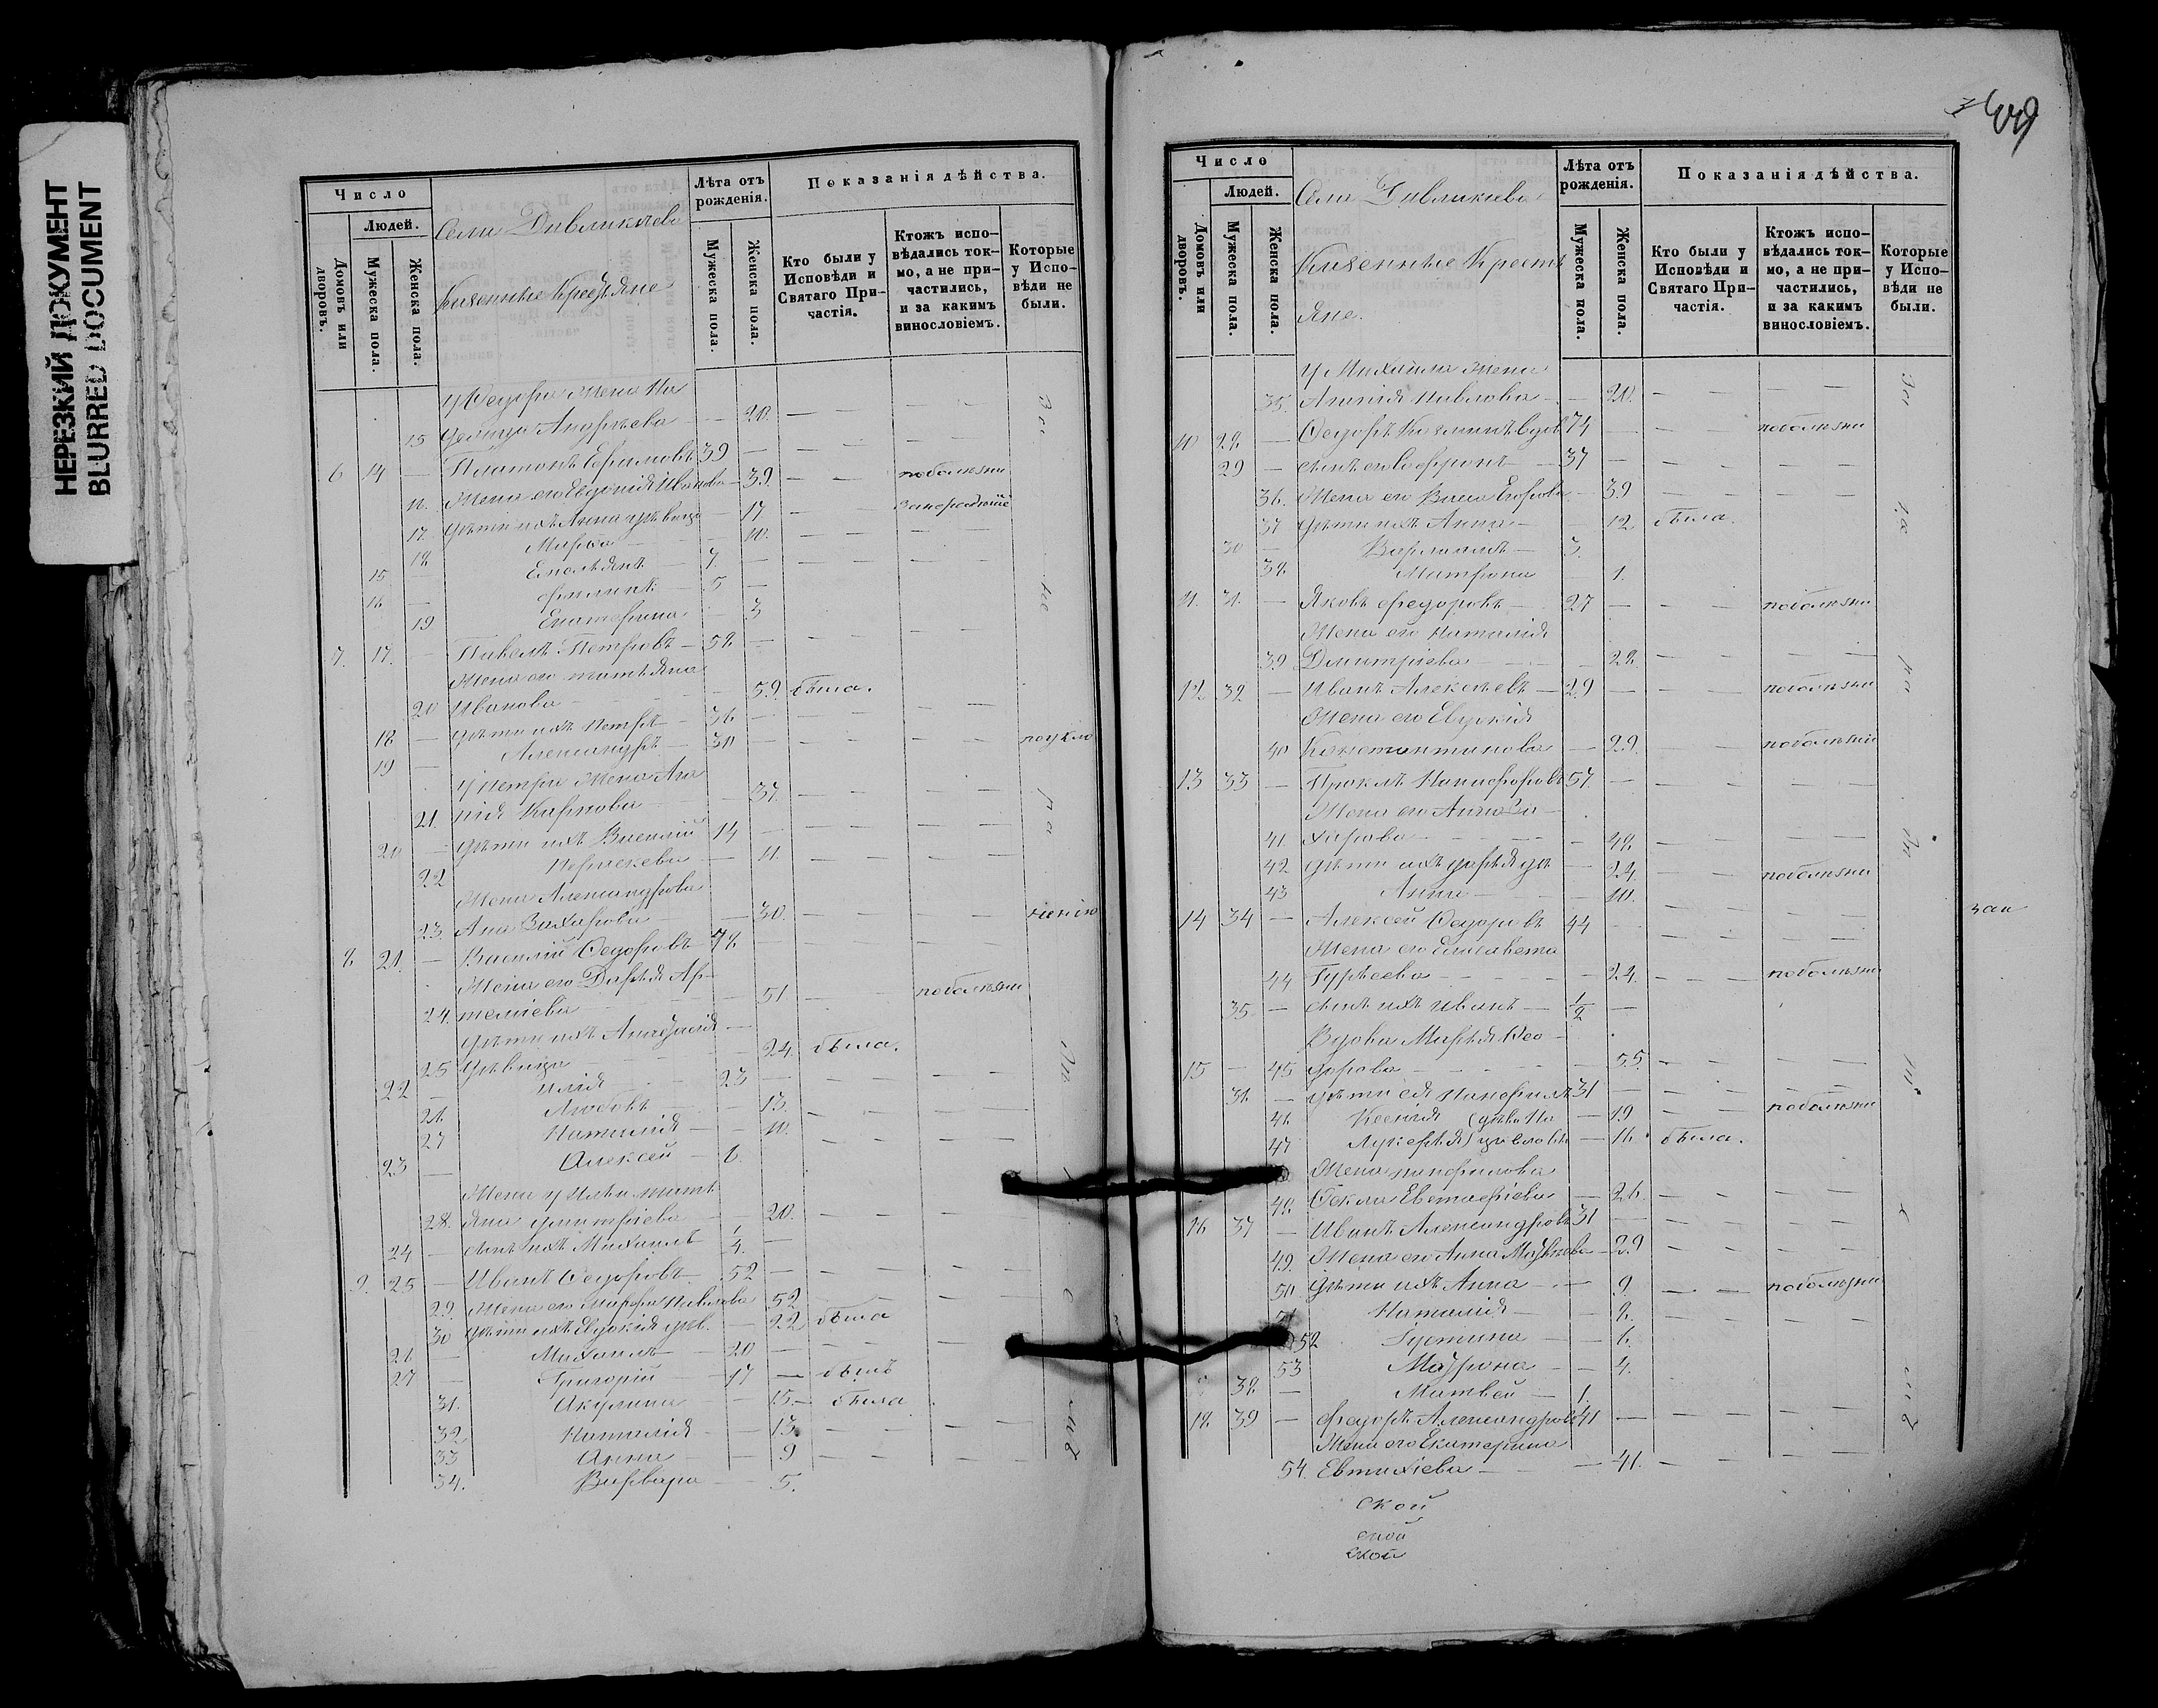 НЕРЕЗКИЙ ДОКУМЕНТ
BLURRED DOCUMENT
Число
Людей.
Домовъ или дворовъ.
Мужеска пола.
Женска пола.
Села Давликеева
Казенные Крестьяне
Лѣта отъ рожденія.
Мужеска пола.
Женска пола.
Показанія дѣйства.
Кто были у Исповѣди и Святаго Причастія.
Ктожъ исповѣдались токмо, а не причастились, и за какимъ винословіемъ.
Которые у Исповѣди не были.
У Федора Жена На
15 Андреева — 20. — — —
6 14 — Платонъ Ефимовъ 39 — — —
16. Жена его Евдокія Иванова — 39. — — по болѣзни
17. Дѣти ихъ Анна дѣвица — 17 —
18. Марѳа — 10. — — —
15 — Емельянъ — 7. — — —
16 — Филиппъ — 5 —
19 Екатерина — 3
7. 17. — Павелъ Петровъ — 58. — — —
Жена его Татьяна
20 Иванова — 59 была.
18. — Дѣти ихъ Петръ — 36 — — —
19 — Александръ — 30 — — — по укло
У Петра Жена Ага
21. пія Карпова — 37. — — —
20 — Дѣти ихъ Василій 14 — — —
22 — 11. — — —
Жена Александрова
23. Ана Захарова — 30. — — — ненію
8. 21. — Василій Федоровъ 48. — — —
Жена его Дарья Ар-
24. темьева — 51 — — по болѣзни
Дѣти ихъ
25 дѣвица — 24 была.
22 — Илія — 23 — — —
26. Любовь — 13. — — —
27 Наталія — 10. — — —
23 — Алексей — 6.
Жена у Ильи Тать
28. яна Дмитріева — 20. — — —
24 — сынъ ихъ Михаилъ 1/4. —
9. 25 — Иванъ Федоровъ 52 — — —
29. Жена его Марѳа Павлова 52 — — —
30 Дѣти ихъ Евдокія дѣв. — 22 была
26 — Михаилъ — 20 — — —
27 — Григорій — 17 — былъ
31. Акулина — 15. — была
32 Наталія — 13 — — —
33 Анна — 9 — — —
34. Варвара — 5.
Число
Людей.
Домовъ или дворовъ.
Мужеска пола.
Женска пола.
Села Давликеева
Казенные Кресть
яне.
Лѣта отъ рожденія.
Мужеска пола.
Женска пола.
Показанія дѣйства.
Кто были у Исповѣди и Святаго Причастія.
Ктожъ исповѣдались токмо, а не причастились, и за какимъ винословіемъ.
Которые у Исповѣди не были.
У Михаила Жена
35. Павлова — 20. — — —
10 28. — Федоръ Козминъ вдов 74 — — по болѣзни
29 — сынъ его Софронъ — 37 — — —
36. Жена его Васса Егорова — 39 — — —
37 Дѣти ихъ Анна — 12 была.
30 — Варлаамъ — 3.
38. Матрона — 1.
11. 31. — Яковъ Федоровъ — 27 — — по болѣзни
Жена его Наталія
39 Дмитріева — 28. — — —
12 32 — Иванъ Алексѣевъ — 29 — — по болѣзни
Жена его Евдокія
40 Константинова — 29. — по болѣзни
13 33 — Проклъ Никифоровъ 57. — — —
Жена его Анна За-
41. харова — 48. — — —
42 Дѣти ихъ Дарья дѣ — 24. — — по болѣзни
43 Анна — 10.
14 34 — Алексей Федоровъ 44 — — — зап
Жена его Елисавета
44 Гурьева — 24. — — по болѣзни
35 — сынъ ихъ Иванъ — 1/2 —
Вдова Марья Фео-
15 45 дорова — 55. — — —
36. — Дѣти ея Панфилъ 31 — — —
46. Ксенія — 19 — — по болѣзни
47 Лукерья — 16. была.
Жена Панфилова
48. Фекла Евстафіева — 26. — — —
16 37 — Иванъ Александровъ 31 — — —
49. Жена его Анна — 29 — — —
50 Дѣти ихъ Анна — 9 — — по болѣзни
51 Наталія — 8. — — —
52 Іустина — 6.
53 Матрона — 4.
38. — Матвей — 1.
18. 39 — Федоръ Александровъ 41 — — —
Жена его Екатерина
54. Евтихіева — 41. — — —
ской
ской
ской